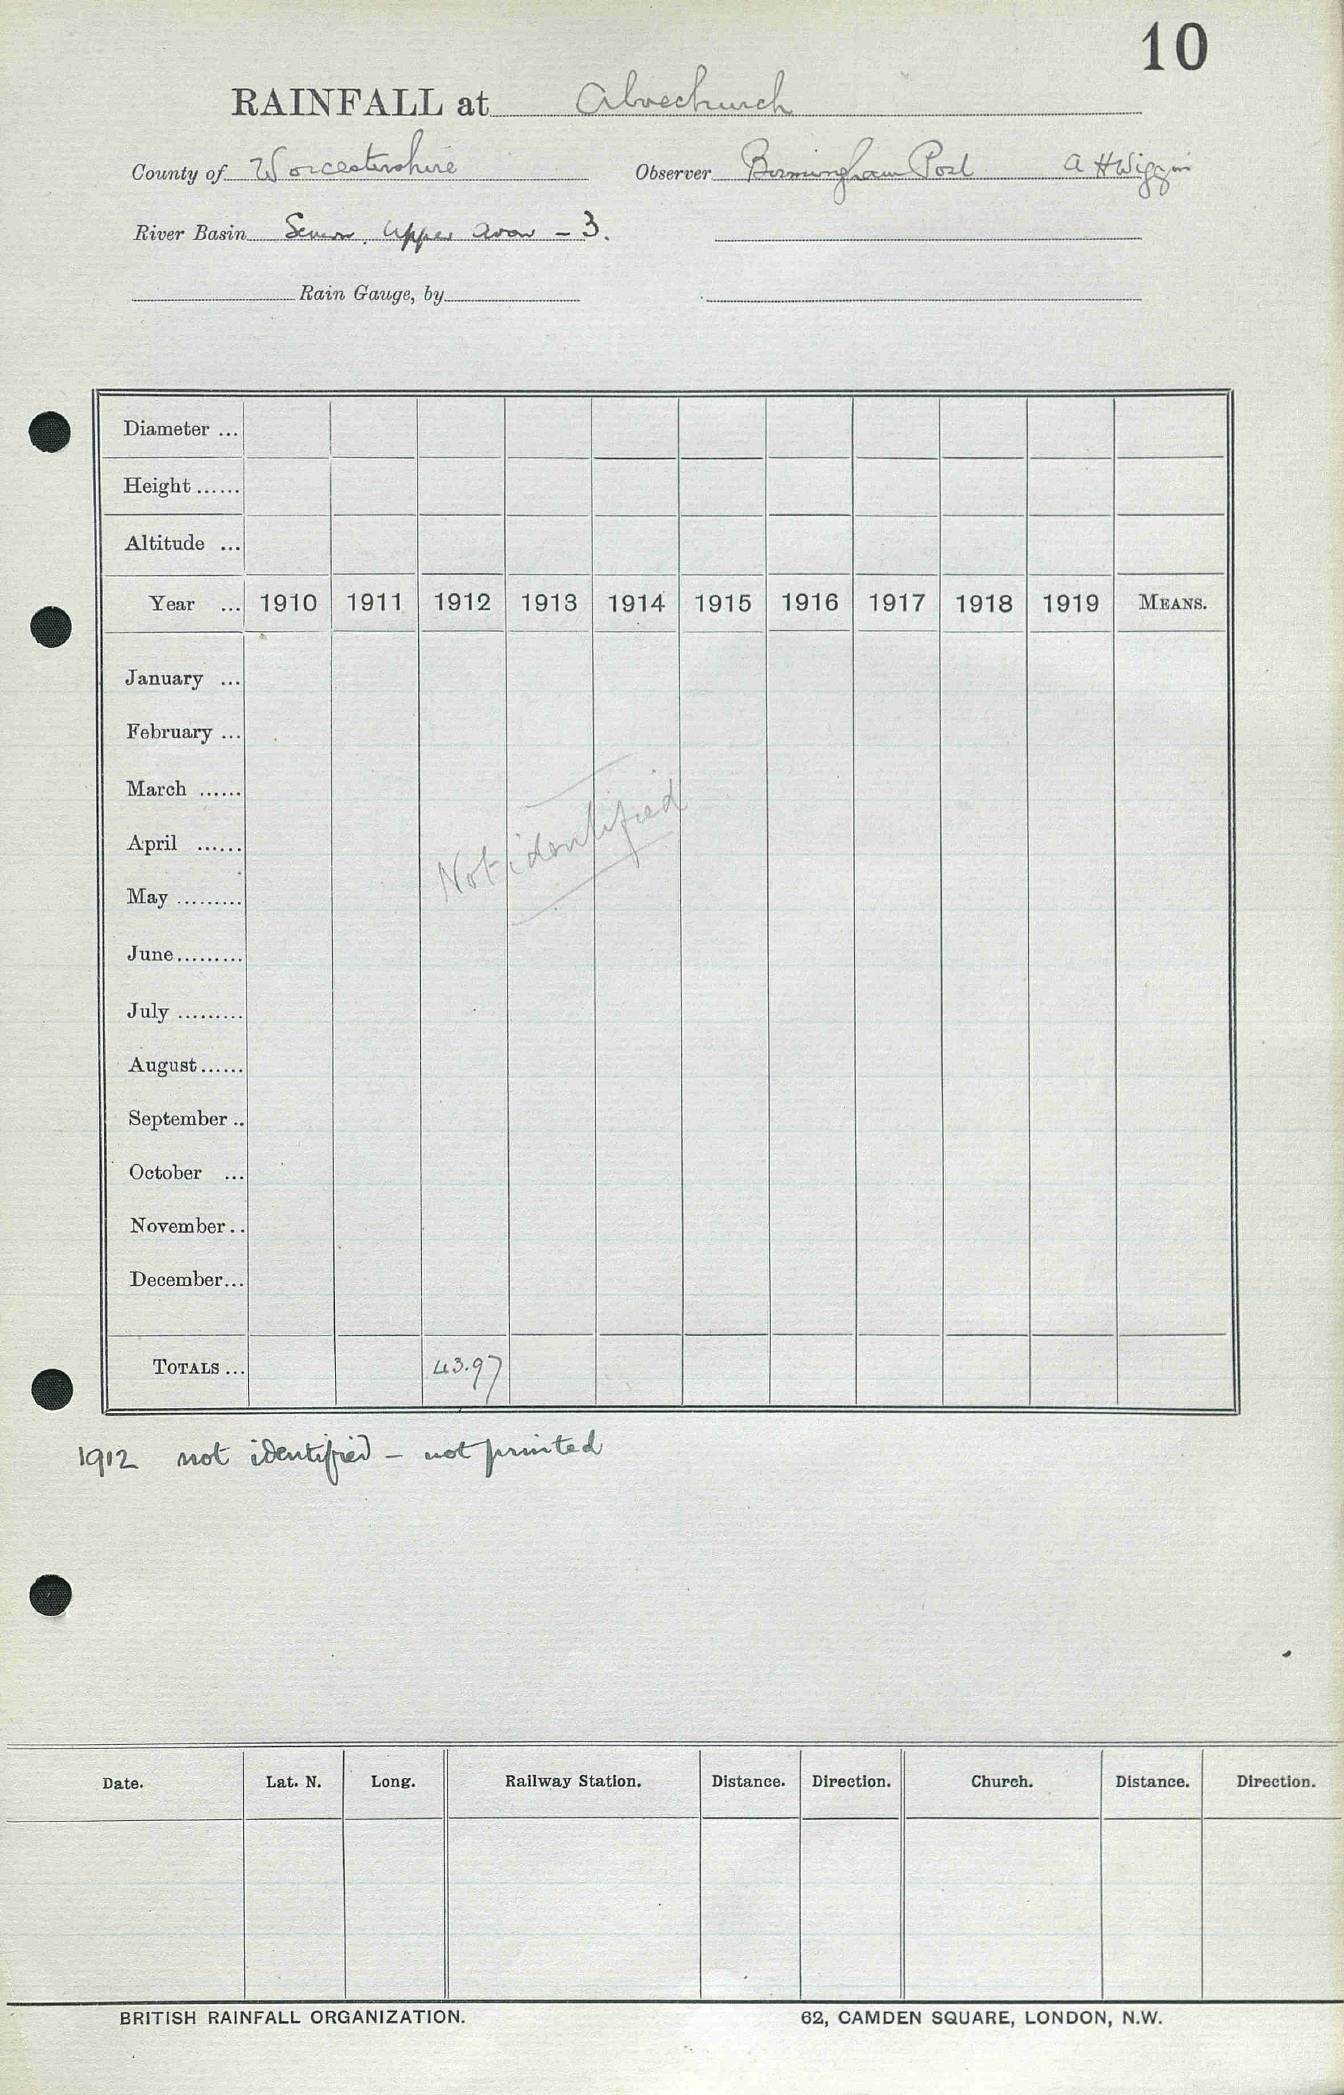 10
RAINFALL at Alvechurch
County of Worcestershire Observer Birmingham Post A H Wiggin
River Basin Severn. Upper Avon - 3.
Rain Gauge, by
Diameter ...
Height ......
Altitude ...
Year ... 1910 1911 1912 1913 1914 1915 1916 1917 1918 1919 MEANS.
January ...
February ...
March ......
Not identified
April ......
May .........
June .........
July .........
August ......
September ..
October ...
November ..
December ...
TOTALS ... 43.97
1912 not identified - not printed
Date. Lat. N. Long. Railway Station. Distance. Direction. Church. Distance. Direction.
BRITISH RAINFALL ORGANIZATION. 62, CAMDEN SQUARE, LONDON, N.W.